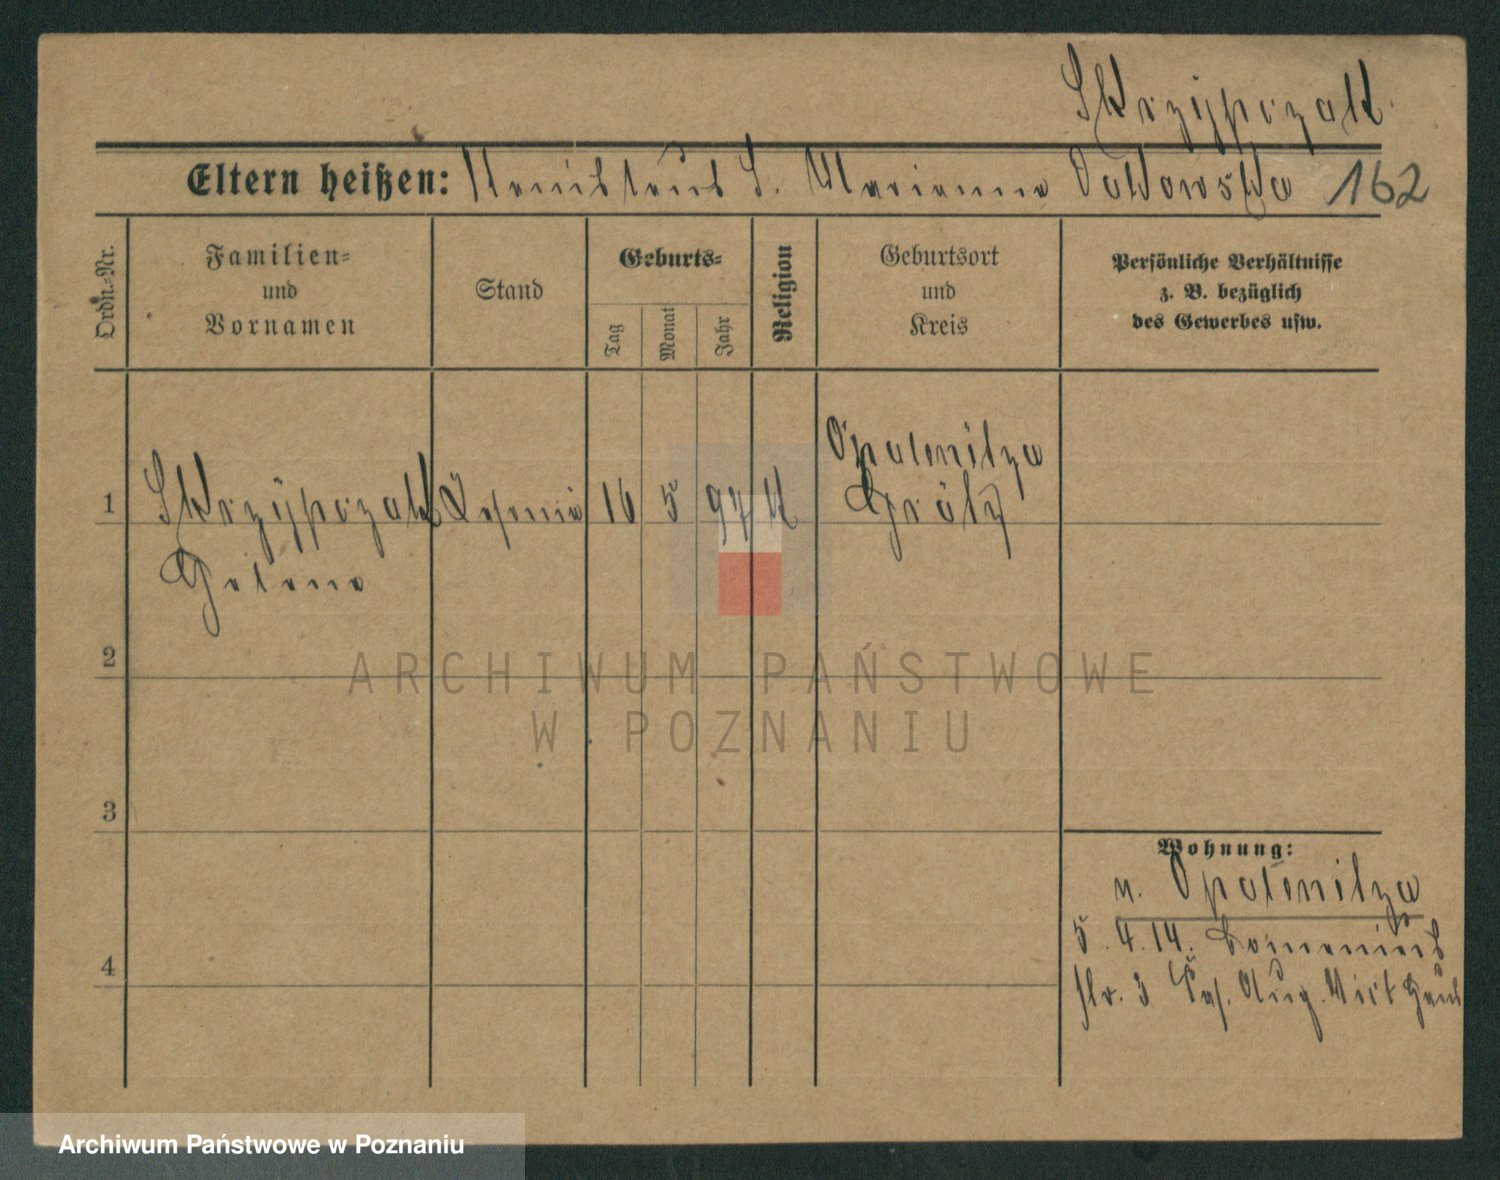 Skrzypczak.
Eltern heißen: Stanislaus S. Marianna 162
Ordn.-Nr.
Familien-
und
Vornamen
Stand
Geburts-
Tag
Monat
Jahr
Religion
Geburtsort
und
Kreis
Persönliche Verhältnisse
z. B. bezüglich
des Gewerbes usw.
Opalenitza
1 Skrzypczak 16 5 97 K Grätz
Helene
2
3
4
Wohnung:
n. Opalenitza
5.4.14.
str. 3 Aug. Vict Haus
ARCHIWUM PAŃSTWOWE
W POZNANIU
Archiwum Państwowe w Poznaniu